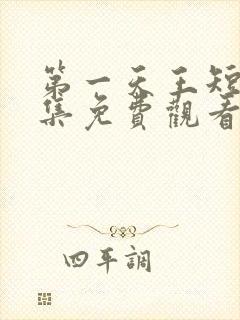 第一天王短
集免費觀看
四平調